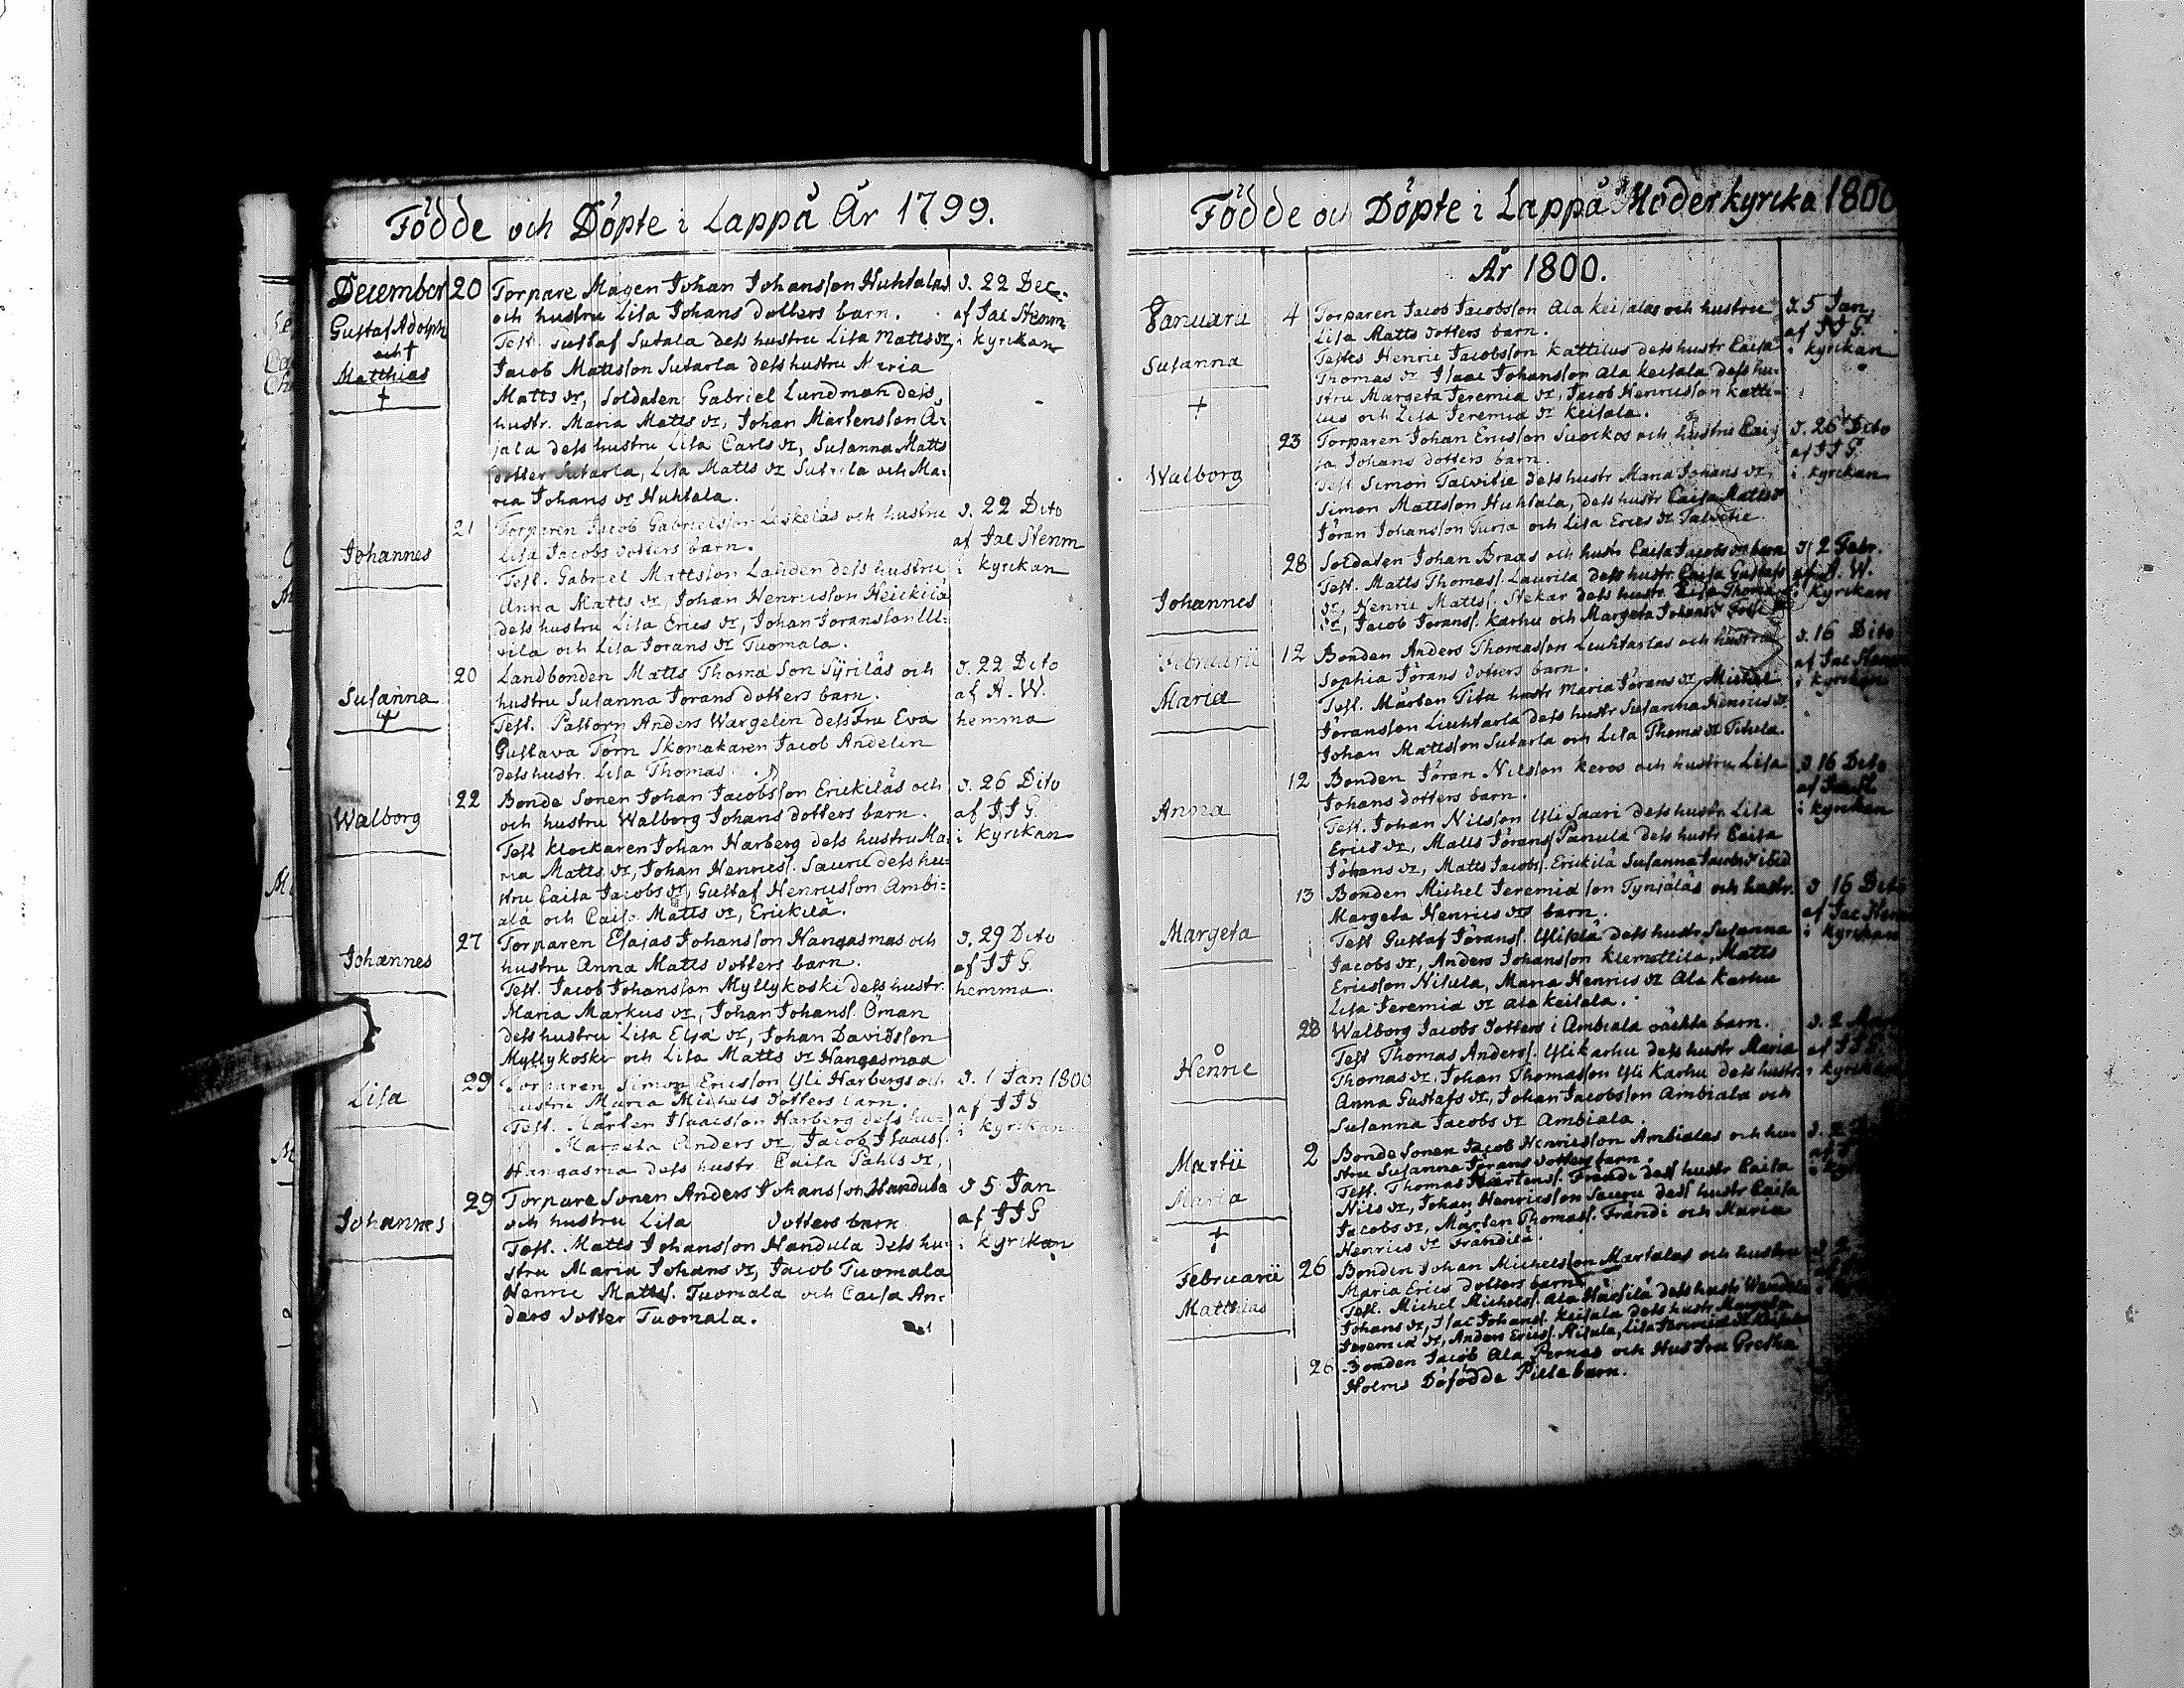 Födde och Döpte i Lappå År 1799.
December 20 Torpare Mågen Johan Johansson Huhtalas d. 22 Dec.
Gustaf Adolph och hustru Lisa Johans dotters barn. af Jac Stenm
och † Test. Gustaf Sutala dess hustru Lisa Matts dr, i kyrkan
Matthias Jacob Mattsson Sutarla dess hustru Maria
† Matts dr, Soldaten Gabriel Lundman dess
hustr. Maria Matts dr, Johan Mårtensson Ä-
jala dess hustru Lisa Carls dr, Susanna Matts
dotter Sutarla, Lisa Matts dr Sutarla och Ma-
ria Johans dr Huhtala.
21 Torparen Jacob Gabrielsson Leskeläs och hustru d. 22 Dito
Johannes Lisa Jacobs dotters barn. af Jac Stenm
Test. Gabriel Mattsson Lahden dess hustru i kyrkan
Anna Matts dr, Johan Henricsson Heickilä
dess hustru Lisa Erics dr, Johan Joransson Ut-
rila och Lisa Jorans dr Tuomala.
20 Landbonden Matts Thomasson Syriläs och d. 22 Dito
Susanna hustru Susanna Jorans dotters barn. af A. W.
† Test. Pastorn Anders Wargelin dess Fru Eva hemma
Gustava Törn Skomakaren Jacob Andelin
dess hustr. Lisa Thomas
22 Bonde Sonen Johan Jacobsson Erickiläs och d. 26 Dito
Walborg och hustru Walborg Johans dotters barn. af J J G.
Test klockaren Johan Harberg dess hustru Ma- i kyrkan
ria Matts dr, Johan Henricss. Sauru dess hu-
stru Caisa Jacobs dr, Gustaf Henricsson Ambi-
ala och Caisa Matts dr, Erickilä.
27 Torparen Esaias Johansson Hangasmas och d. 29 Dito
Johannes hustru Anna Matts dotters barn. af J J G.
Test. Jacob Johansson Myllykoski dess hustr. hemma.
Maria Markus dr, Johan Johanss. Öman
dess hustru Lisa Esa dr, Johan Davidsson
Myllykoski och Lisa Matts dr Hangasmaa
29 Torparen Simon Ericsson Yli Harbergs och d. 1 Jan 1800
Lisa hustru Maria Michels dotters barn. af J J G
Test. Mårten Isaacsson Harberg dess hu- i kyrkan
Margeta Anders dr Jacob Isaacss.
Hangasma dess hustr. Caisa Påhls dr,
29 Torpare Sonen Anders Johansson Handula d 5 Jan
Johannes och hustru Lisa dotters barn af J J G
Test. Matts Johansson Handula dess hu- i kyrkan
stru Maria Johans dr, Jacob Tuomala
Henric Matts. Tuomala och Caisa An-
ders dotter Tuomala.
Födde och Döpte i Lappå Moderkyrcka 1800
År 1800.
Januarii 4 Torparen Jacob Jacobsson Ala keisalas och hustru d. 5 Jan.
Lisa Matts dotters barn. af J J G.
Susanna Testes Henric Jacobsson Kattilus dess hustr Caisa i kyrkan
Thomas dr Isaac Johansson Ala keisala dess hu-
† stru Margeta Jeremia dr, Jacob Henricsson Katti-
lus och Lisa Jeremia dr Keisala.
23 Torparen Johan Ericsson Suockos och hustru Cai- d. 26 Dito
sa Johans dotters barn. af J J G.
Walborg Test Simon Talvitie dess hustr Maria Johans dr, i kyrkan
Simon Mattsson Huhtala, dess hustr Caisa Matts dr
Jöran Johansson Turja och Lisa Erics dr Talvitie.
28 Soldaten Johan Braas och hustr Caisa Jacobs dr barn d. 2 Febr.
Test. Matts Thomass. Laurila dess hustr. Caisa Gustafs af A. W.
Johannes dr, Henric Matts. Stekar dess hustr. Lisa Thomas i kyrkan
dr, Jacob Jorans. Karhu och Margeta Johans dr
Februarii 12 Bonden Anders Thomasson Liuhtarlas och hustru d. 16 Dito
Sophia Jörans dotters barn. af Jac Stenm
Maria Test. Mårten Tita hustr Maria Jörans dr, Michel i kyrkan
Jöransson Liuhtarla dess hustr Susanna Henrics dr
Johan Mattsson Sutarla och Lisa Thomas dr Titula.
12 Bonden Jöran Nilsson keros och hustru Lisa d. 16 Dito
Johans dotters barn.
Anna Test. Johan Nilsson Yli Saari dess hustr. Lisa i kyrkan
Erics dr, Matts Jörans. Panula dess hustr Caisa
Johans dr, Matts Jacobs. Erickilä Susanna Jacobs dr ibid
13 Bonden Michel Jeremiasson Tynjäläs och hustr. d 16 Dito
Margeta Henrics drs barn. af Jac Stenm
Margeta Test Gustaf Jörans. dess hustr. Susanna i kyrkan
Jacobs dr, Anders Johansson Klemettila, Matts
Ericsson Nisula, Maria Henrics dr Ala Karhu
Lisa Jeremia dr Ala keisala.
28 Walborg Jacobs dotters i Ambiala oäckta barn. d. 2
Henric Test Thomas Anderss. Ylikarhu dess hustr Maria af J J G
Thomas dr. Johan Thomasson Yli Karhu dess hustr. i kyrkan
Anna Gustafs dr, Johan Jacobsson Ambiala och
Susanna Jacobs dr Ambiala.
Martii 2 Bonde Sonen Jacob Henricsson Ambialas och hu-
stru Susanna Jörans dotters barn.
Maria Test. Thomas Mårtens. Frändi dess hustr Caisa
Nils dr, Johan Henricsson Sauru dess hustr Caisa
† Jacobs dr, Mårten Thomass. Frändi och Maria
Henrics dr Frändilä.
Februarii 26 Bonden Johan Michelsson Martalas och hustru
Maria Erics dotters barn
Matthias Test. Michel Michels. Ala Härsilä dess hustr
Johans dr, Isac Johanss. Keisala dess hustr Margeta
Jeremia dr, Anders Erics. Nisula, Lisa Jeremia dr Keisala
26 Bonden Jacob Ala Pernas och Hustru Gretha
Holms Döfödde Pilte barn.